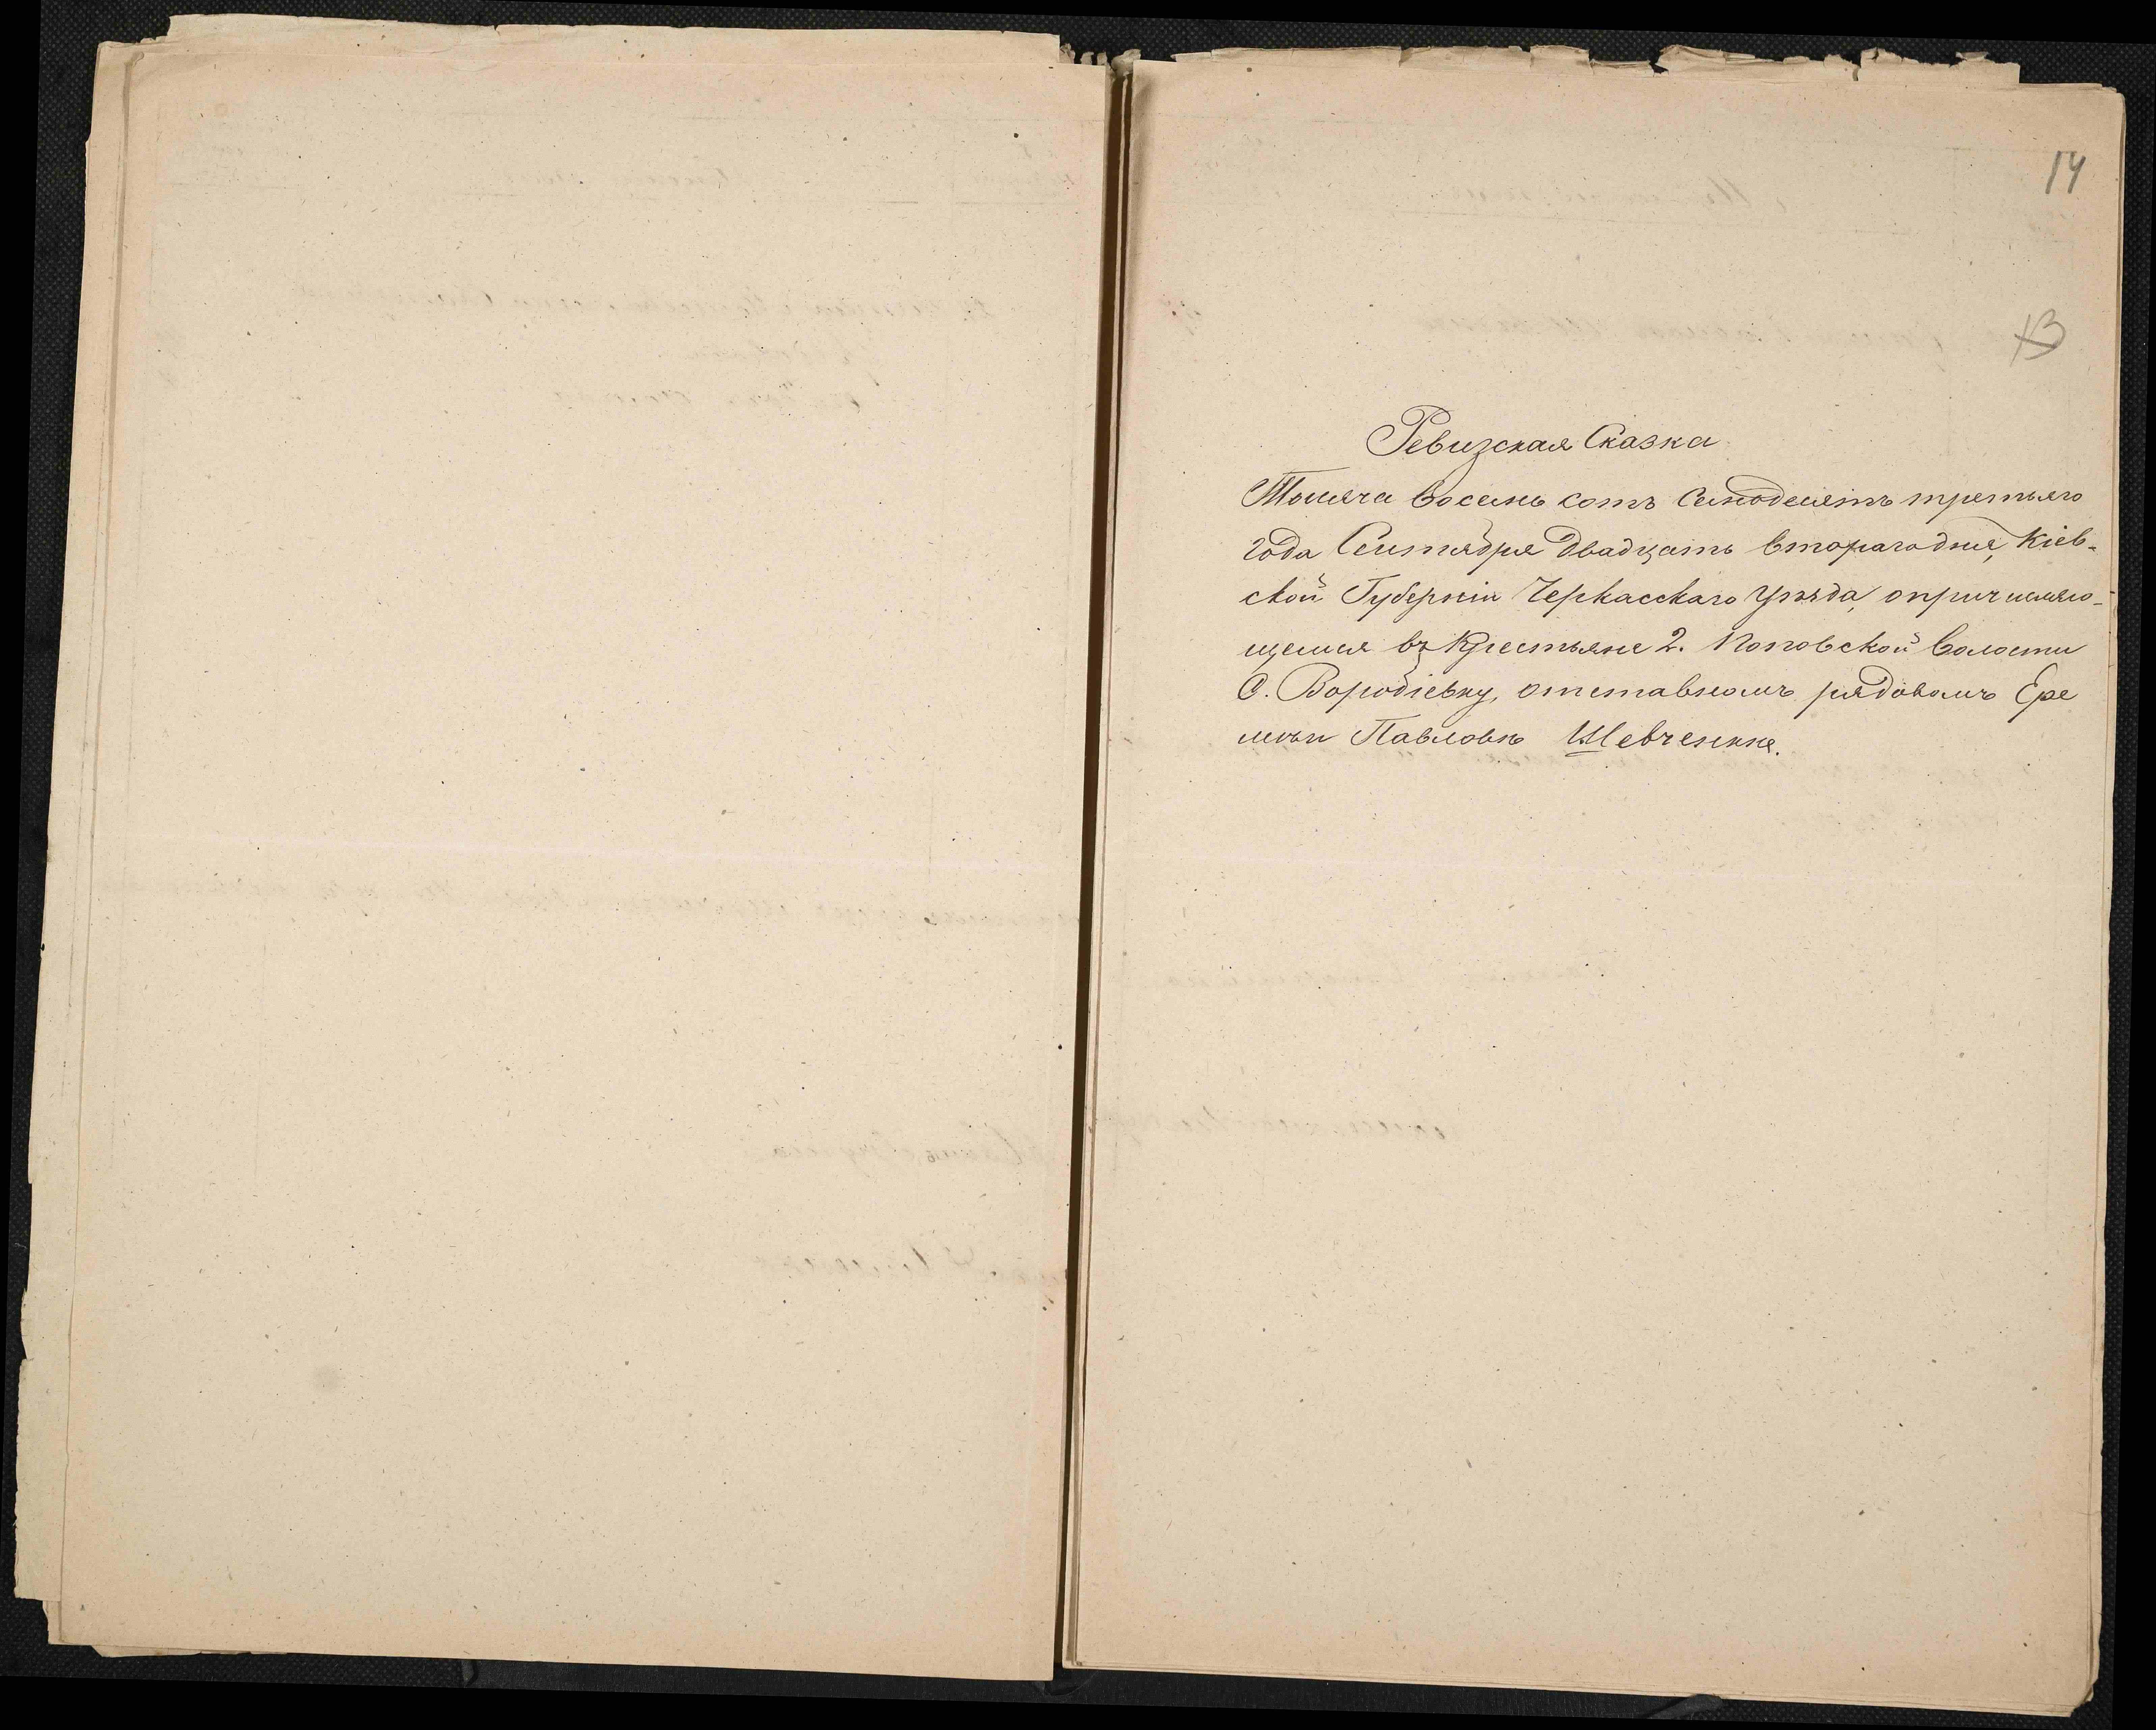 14
13
Ревизская Сказка
Тысяча восемь сотъ семьдесятъ третьяго
года Сентября двадцать втораго дня, Кіев-
ской Губерніи Черкасскаго Уѣзда, опричисляю-
щемся въ крестьяне 2. Поповской волости
С. Воробіевку, отставномъ рядовомъ Ере
меѣи Павловѣ Шевченкѣ.